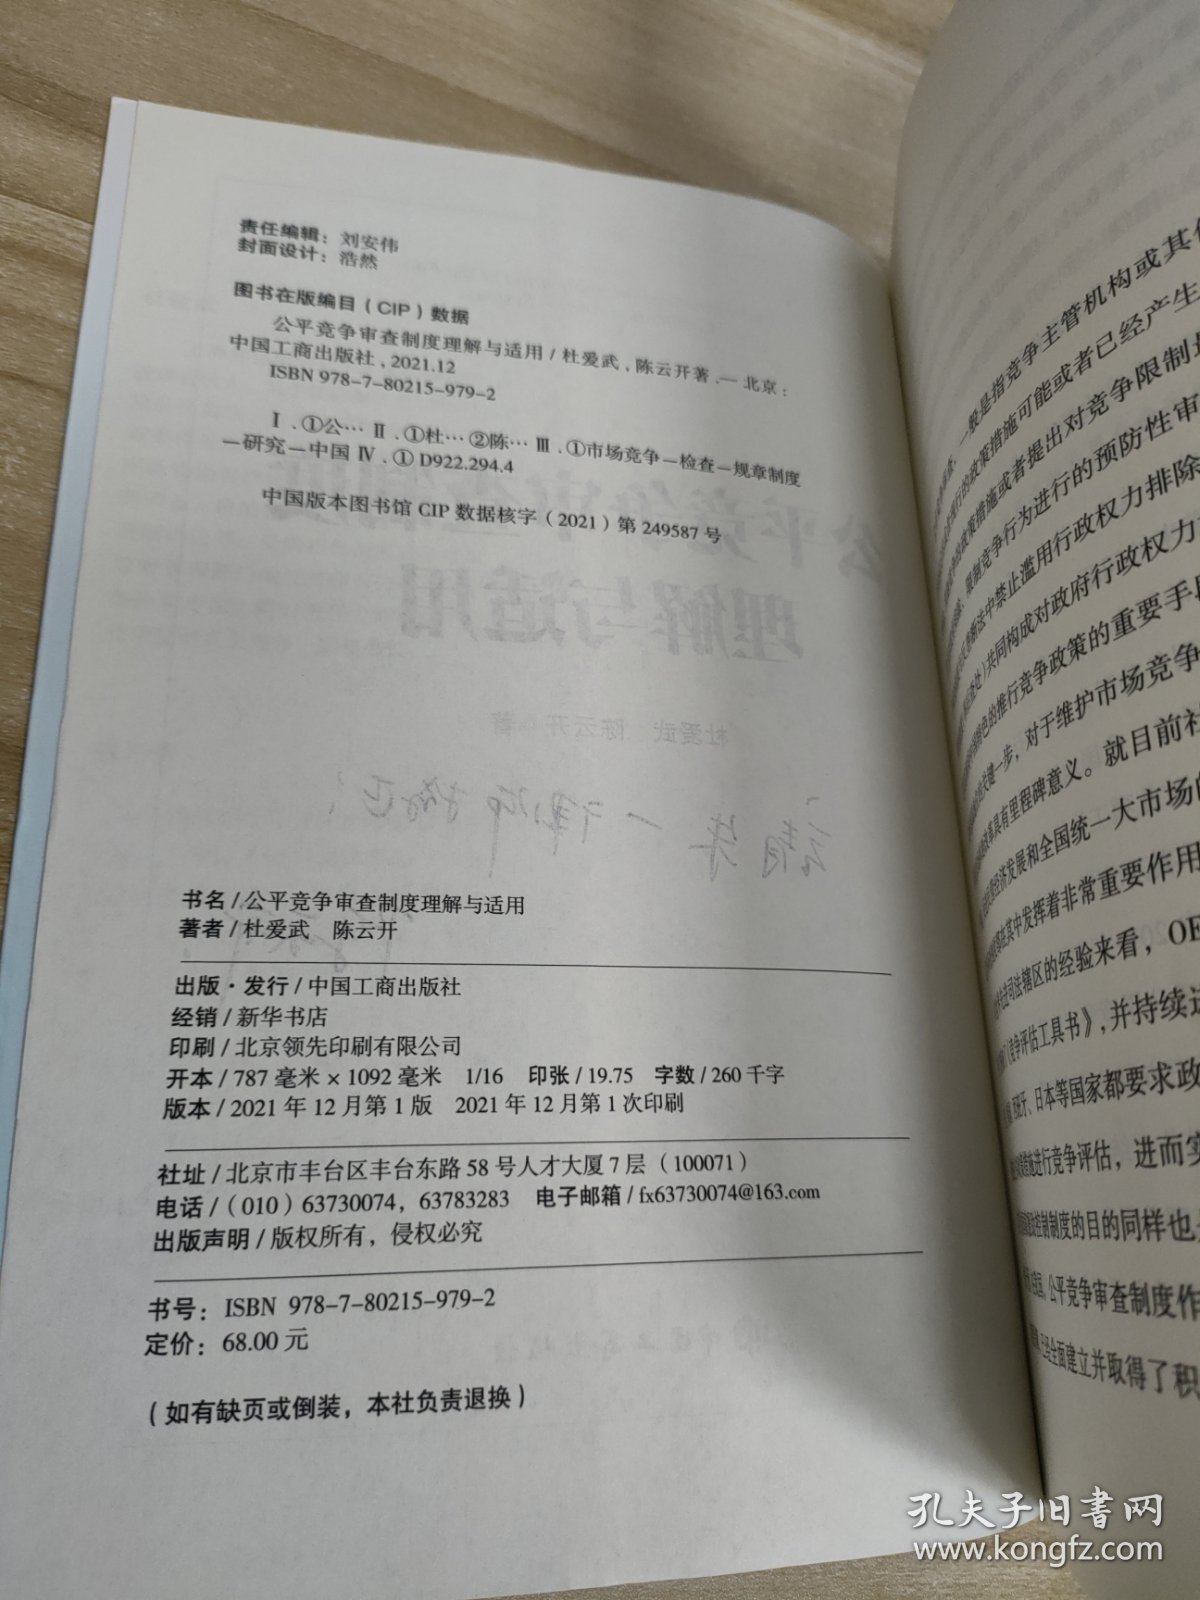 责任编辑：刘安伟
封面设计：浩然
图书在版编目（CIP）数据
公平竞争审查制度理解与适用 / 杜爱武，陈云开著．— 北京：
中国工商出版社，2021.12
ISBN 978-7-80215-979-2
Ⅰ．①公… Ⅱ．①杜… ②陈… Ⅲ．①市场竞争—检查—规章制度
—研究—中国 Ⅳ．① D922.294.4
中国版本图书馆 CIP 数据核字（2021）第 249587 号
书名 / 公平竞争审查制度理解与适用
著者 / 杜爱武　陈云开
出版·发行 / 中国工商出版社
经销 / 新华书店
印刷 / 北京领先印刷有限公司
开本 / 787 毫米 × 1092 毫米　1/16　印张 / 19.75　字数 / 260 千字
版本 / 2021 年 12 月第 1 版　2021 年 12 月第 1 次印刷
社址 / 北京市丰台区丰台东路 58 号人才大厦 7 层（100071）
电话 /（010）63730074，63783283　电子邮箱 / fx63730074@163.com
出版声明 / 版权所有，侵权必究
书号：ISBN 978-7-80215-979-2
定价：68.00 元
（如有缺页或倒装，本社负责退换）
一般是指竞争主管机构或其他
的政策措施可能或者已经产生
的政策措施或者提出对竞争限制
限制竞争行为进行的预防性审
法中禁止滥用行政权力排除
共同构成对政府行政权力
色的推行竞争政策的重要手段
关键一步，对于维护市场竞争
具有里程碑意义。就目前社
经济发展和全国统一大市场的
其中发挥着非常重要作用
司法辖区的经验来看，OE
竞争评估工具书》，并持续
班牙、日本等国家都要求政
进行竞争评估，进而实
控制制度的目的同样也
公平竞争审查制度作
已经全面建立并取得了积
孔夫子旧书网
www.kongfz.com